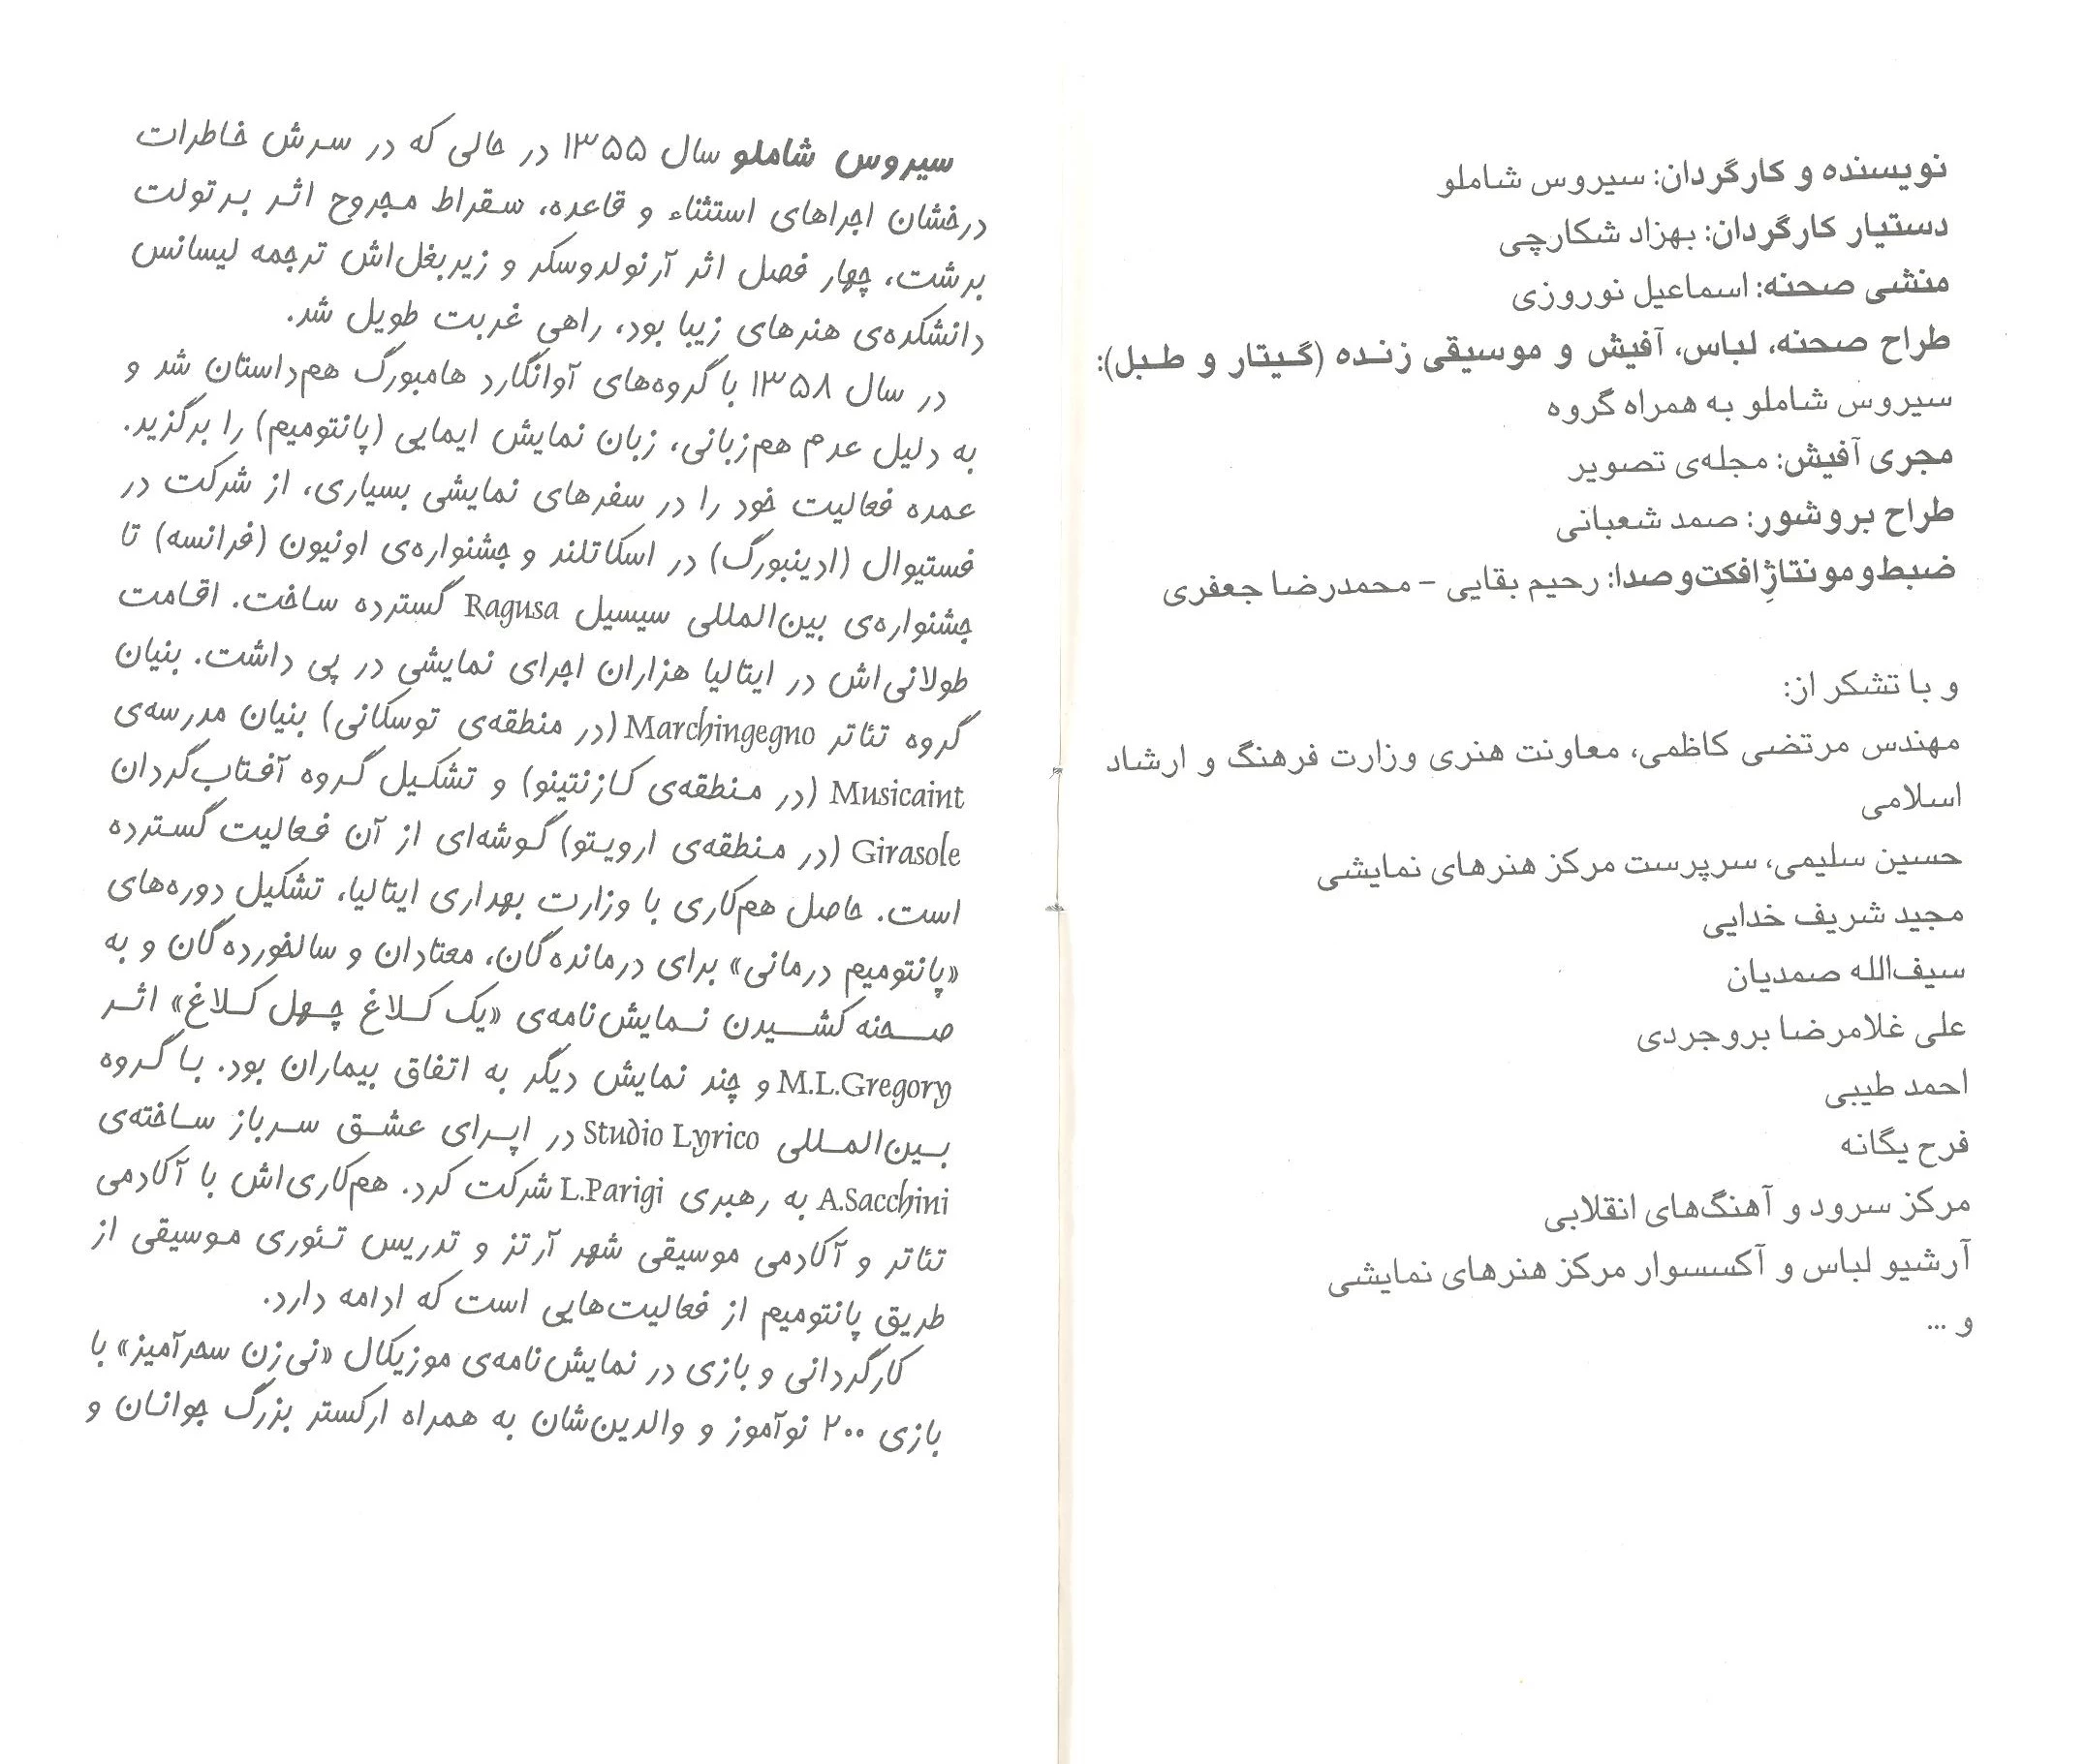 نویسنده و کارگردان: سیروس شاملو
دستیار کارگردان: بهزاد شکارچی
منشی صحنه: اسماعیل نوروزی
طراح صحنه، لباس، آفیش و موسیقی زنده (گیتار و طبل):
سیروس شاملو به همراه گروه
مجری آفیش: مجله‌ی تصویر
طراح بروشور: صمد شعبانی
ضبط‌و‌مونتاژِ‌افکت‌و‌صدا: رحیم بقایی - محمدرضا جعفری
و با تشکر از:
مهندس مرتضی کاظمی، معاونت هنری وزارت فرهنگ و ارشاد
اسلامی
حسین سلیمی، سرپرست مرکز هنرهای نمایشی
مجید شریف خدایی
سیف‌الله صمدیان
علی غلامرضا بروجردی
احمد طیبی
فرح یگانه
مرکز سرود و آهنگ‌های انقلابی
آرشیو لباس و آکسسوار مرکز هنرهای نمایشی
و ...
سیروس شاملو سال ۱۳۵۵ در حالی که در سرش خاطرات
درخشان اجراهای استثناء و قاعده، سقراط مجروح اثر برتولت
برشت، چهار فصل اثر آرنولدوسکر و زیربغل‌اش ترجمه لیسانس
دانشکده‌ی هنرهای زیبا بود، راهی غربت طویل شد.
در سال ۱۳۵۸ با گروه‌های آوانگارد هامبورگ هم‌داستان شد و
به دلیل عدم هم‌زبانی، زبان نمایش ایمایی (پانتومیم) را برگزید.
عمده فعالیت خود را در سفرهای نمایشی بسیاری، از شرکت در
فستیوال (ادینبورگ) در اسکاتلند و جشنواره‌ی اونیون (فرانسه) تا
جشنواره‌ی بین‌المللی سیسیل Ragusa گسترده ساخت. اقامت
طولانی‌اش در ایتالیا هزاران اجرای نمایشی در پی داشت. بنیان
گروه تئاتر Marchingegno (در منطقه‌ی توسکانی) بنیان مدرسه‌ی
Musicaint (در منطقه‌ی کازنتینو) و تشکیل گروه آفتاب‌گردان
Girasole (در منطقه‌ی ارویتو) گوشه‌ای از آن فعالیت گسترده
است. حاصل هم‌کاری با وزارت بهداری ایتالیا، تشکیل دوره‌های
«پانتومیم درمانی» برای درمانده‌گان، معتادان و سالخورده‌گان و به
صحنه کشیدن نمایش‌نامه‌ی «یک کلاغ چهل کلاغ» اثر
M.L.Gregory و چند نمایش دیگر به اتفاق بیماران بود. با گروه
بین‌المللی Studio Lyrico در اپرای عشق سرباز ساخته‌ی
A.Sacchini به رهبری L.Parigi شرکت کرد. هم‌کاری‌اش با آکادمی
تئاتر و آکادمی موسیقی شهر آرتز و تدریس تئوری موسیقی از
طریق پانتومیم از فعالیت‌هایی است که ادامه دارد.
کارگردانی و بازی در نمایش‌نامه‌ی موزیکال «نی‌زن سحرآمیز» با
بازی ۲۰۰ نوآموز و والدین‌شان به همراه ارکستر بزرگ جوانان و